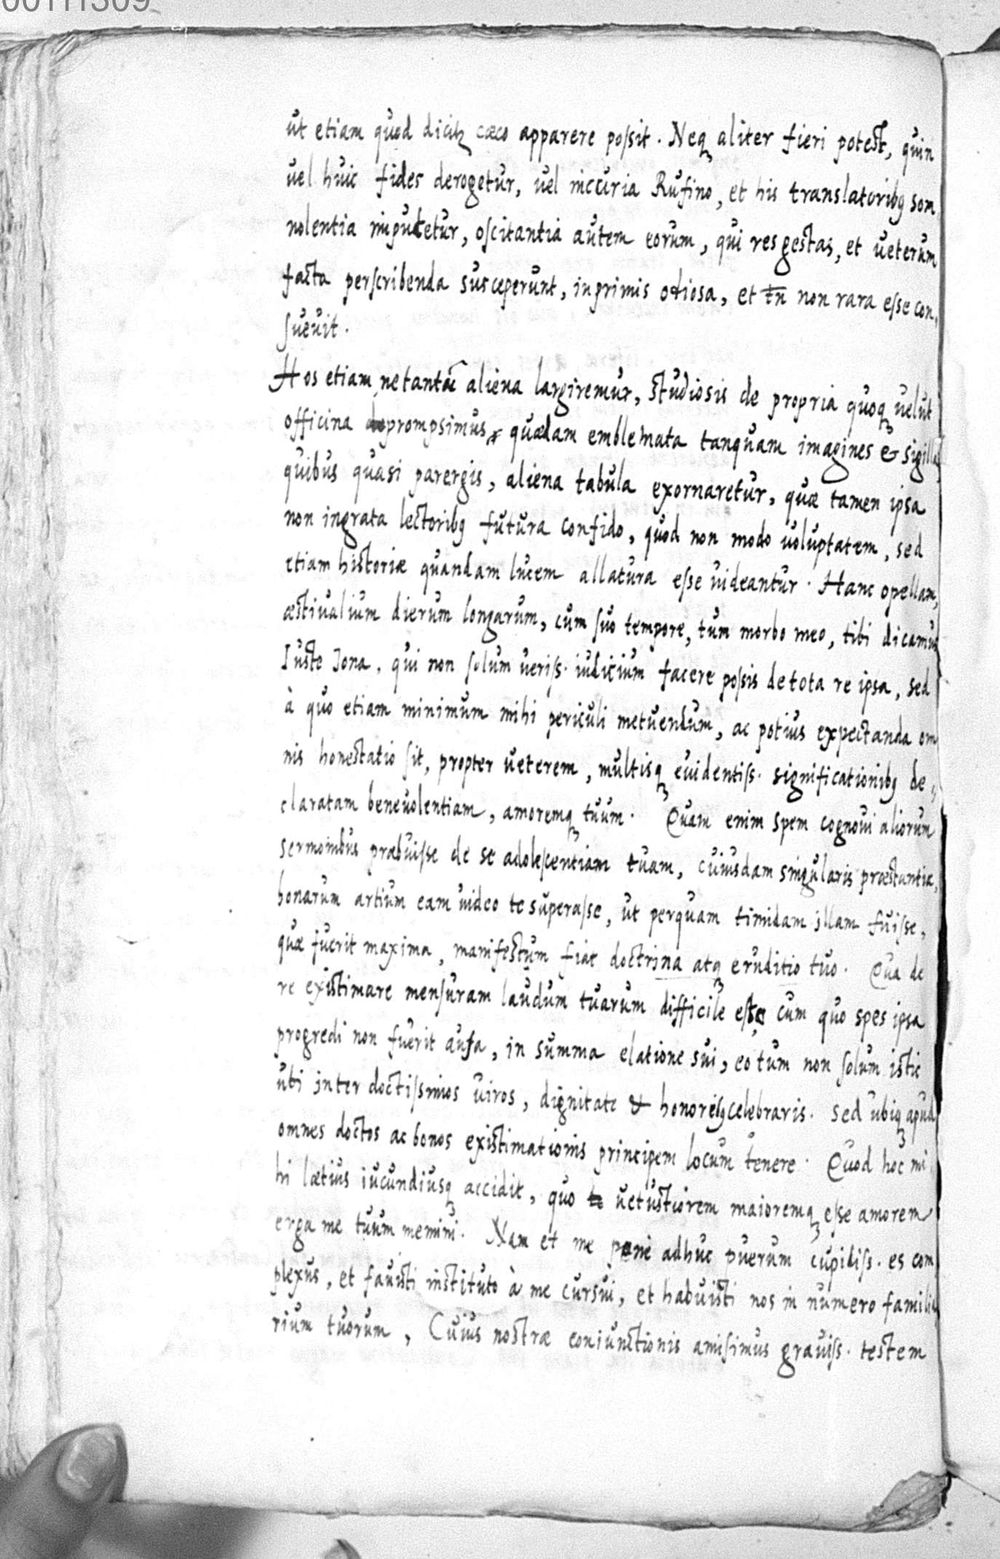 00111309
ut etiam quod dicitʒ cæco apparere poſsit. Neqʒ aliter fieri poteſt, quin
uel huic fides derogetur, uel incuria Rufino, et his translatoribʒ som
nolentia imputetur, oſcitantia autem eorum, qui res geſtas, et ueterum
facta perſcribenda susceperunt, inprimis odiosa, et tn̄ non rara eſse con,
ſueuit.
Hos etiam ne tantũ aliena largiremur, ſtudiosis de propria quoqʒ uelut
officina depromp­simus quædam emblemata tanquam imagines & sigilla
quibus quasi parergis, aliena tabula exornaretur, quæ tamen ipsa
non ingrata lectoribʒ futura confido, quod non modo uoluptatem, sed
etiam hiſtoriæ quandam lucem allatura eſse uideantur. Hanc opellam,
æſtiualium dierum longarum, cum ſuo tempore, tum morbo meo, tibi dicamus
Iuſte Iona, qui non ſolum ueriſs. iudicium facere poſsis de tota re ipsa, sed
à quo etiam minimum mihi periculi metuendum, ac potius expectanda om
nis honeſtatio ſit, propter ueterem, multisqʒ euidentiſs. significationibʒ de,
claratam beneuolentiam, amoremqʒ tuum. Quam enim spem cognoui aliorum
sermonibus præbuiſse de se adoleſcentiam tuam, cuiusdam singularis præſtantiæ,
bonarum artium eam uideo te superaſse, ut perquam timidam illam fuiſse,
quæ fuerit maxima, manifeſtum fiat doctrina atqʒ eruditio tuo. Qua de
re exiſtimare menſuram laudum tuarum difficile eſt, cum quo spes ipsa
progredi non fuerit auſa, in summa elatione sui, eo tum non ſolum iſtic
ubi inter doctiſsimos uiros, dignitate & honore celebraris. sed ubiqʒ apud
omnes doctos ac bonos exiſtimationis principem locum tenere. Quod hoc mi
hi lætius iucundiusqʒ accidit, quo uetuſtiorem maioremqʒ eſse amorem
erga me tuum memini. Nam et me penè adhuc puerum cupidiſs. es com
plexus, et fauiſti inſtituto à me cursui, et habuiſti nos in numero familia
rium tuorum, Cuius noſtræ coniunctionis amiſimus grauiſs. teſtem